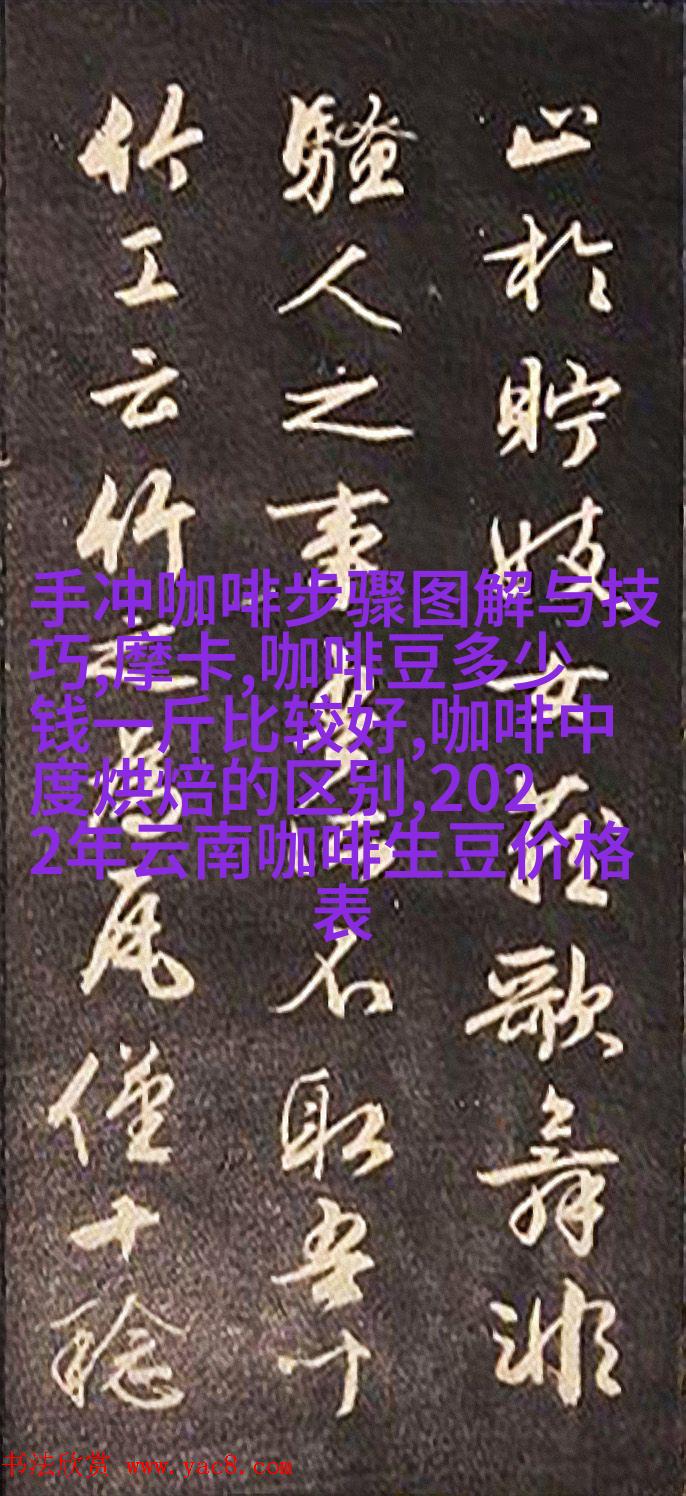 止於貯妓女藏歌舞非
騷人之事不取吾
竹工云竹之為瓦僅十稔
手冲咖啡步骤图解与技
巧,摩卡,咖啡豆多少
钱一斤比较好,咖啡中
度烘焙的区别,202
2年云南咖啡生豆价格
表
书法欣赏 www.yac8.com